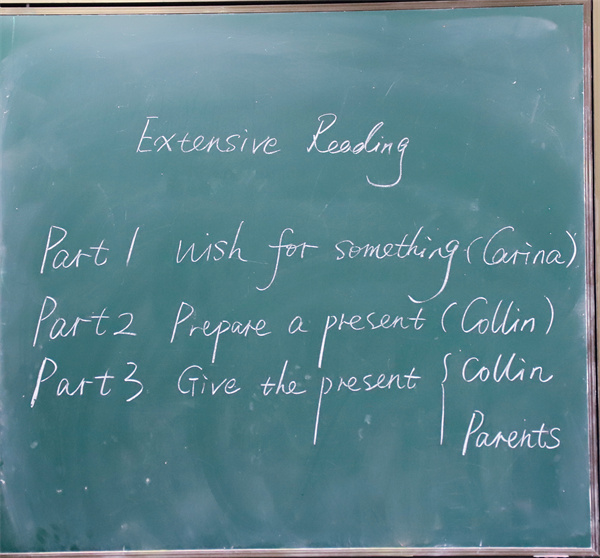 Extensive Reading
Part 1 wish for something (Carina)
Part 2 Prepare a present (Collin)
Part 3 Give the present { Collin
Parents